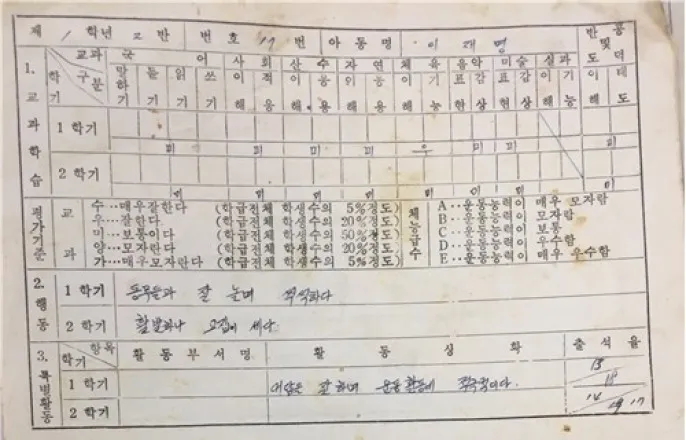 제 1 학년 2 반 번호 17 번 아동명 이재명
반공 및 도덕
교과 국어 사회 산수 자연 체육 음악 미술 실과
학기 구분 말하기 듣기 읽기 쓰기 이해 적응 이해 응용 이해 응용 이해 기능 표현 감상 표현 감상 이해 기능 이해 태도
1. 교과학습
1 학기
미 미 미 미 우 미 미
2 학기
미 미 미 미 미 미 미 미
평가기준
교과
수…매우잘한다 (학급전체 학생수의 5%정도)
우…잘한다. (학급전체 학생수의 20%정도)
미…보통이다 (학급전체 학생수의 50%정도)
양…모자란다 (학급전체 학생수의 20%정도)
가…매우모자란다 (학급전체 학생수의 5%정도)
체능급수
A‥운동능력이 매우 모자람
B‥운동능력이 모자람
C‥운동능력이 보통
D‥운동능력이 우수함
E‥운동능력이 매우 우수함
2. 행동
1 학기 동무들과 잘 놀며 씩씩하다
2 학기 활발하나 고집이 세다
3. 특별활동
학기 항목 활동부서명 활동상황 출석율
1 학기 대답은 잘 하며 운동활동에 적극적이다.
2 학기